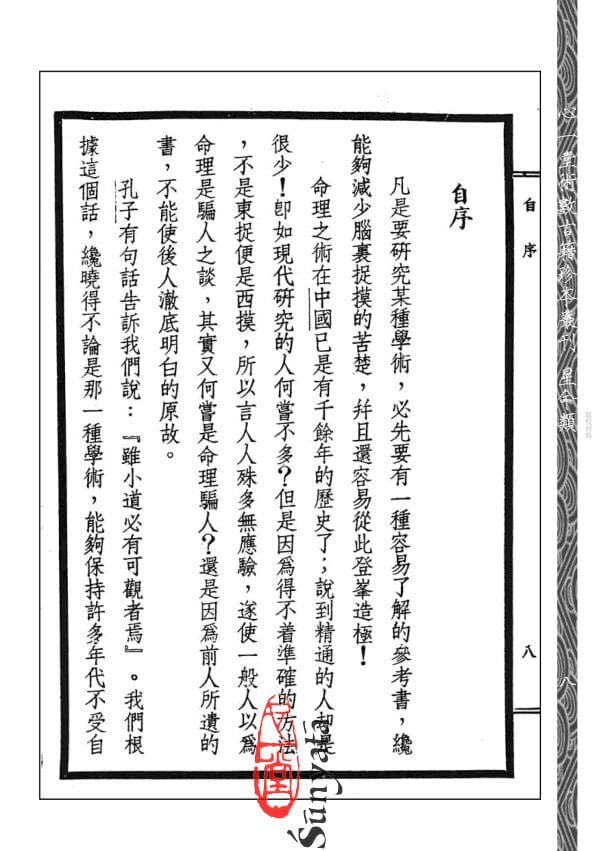 自序
凡是要研究某種學術，必先要有一種容易了解的參考書，纔
能夠減少腦裏捉摸的苦楚，幷且還容易從此登峯造極！
命理之術在中國已是有千餘年的歷史了；說到精通的人却是
很少！卽如現代研究的人何嘗不多？但是因爲得不着準確的方法
，不是東捉便是西摸，所以言人人殊多無應驗，遂使一般人以爲
命理是騙人之談，其實又何嘗是命理騙人？還是因爲前人所遺的
書，不能使後人澈底明白的原故。
孔子有句話告訴我們說：『雖小道必有可觀者焉』。我們根
據這個話，纔曉得不論是那一種學術，能夠保持許多年代不受自
自序
八
心一堂術數古籍珍本叢刊 星命類
八
心一堂
Śūnyatā
版权材料